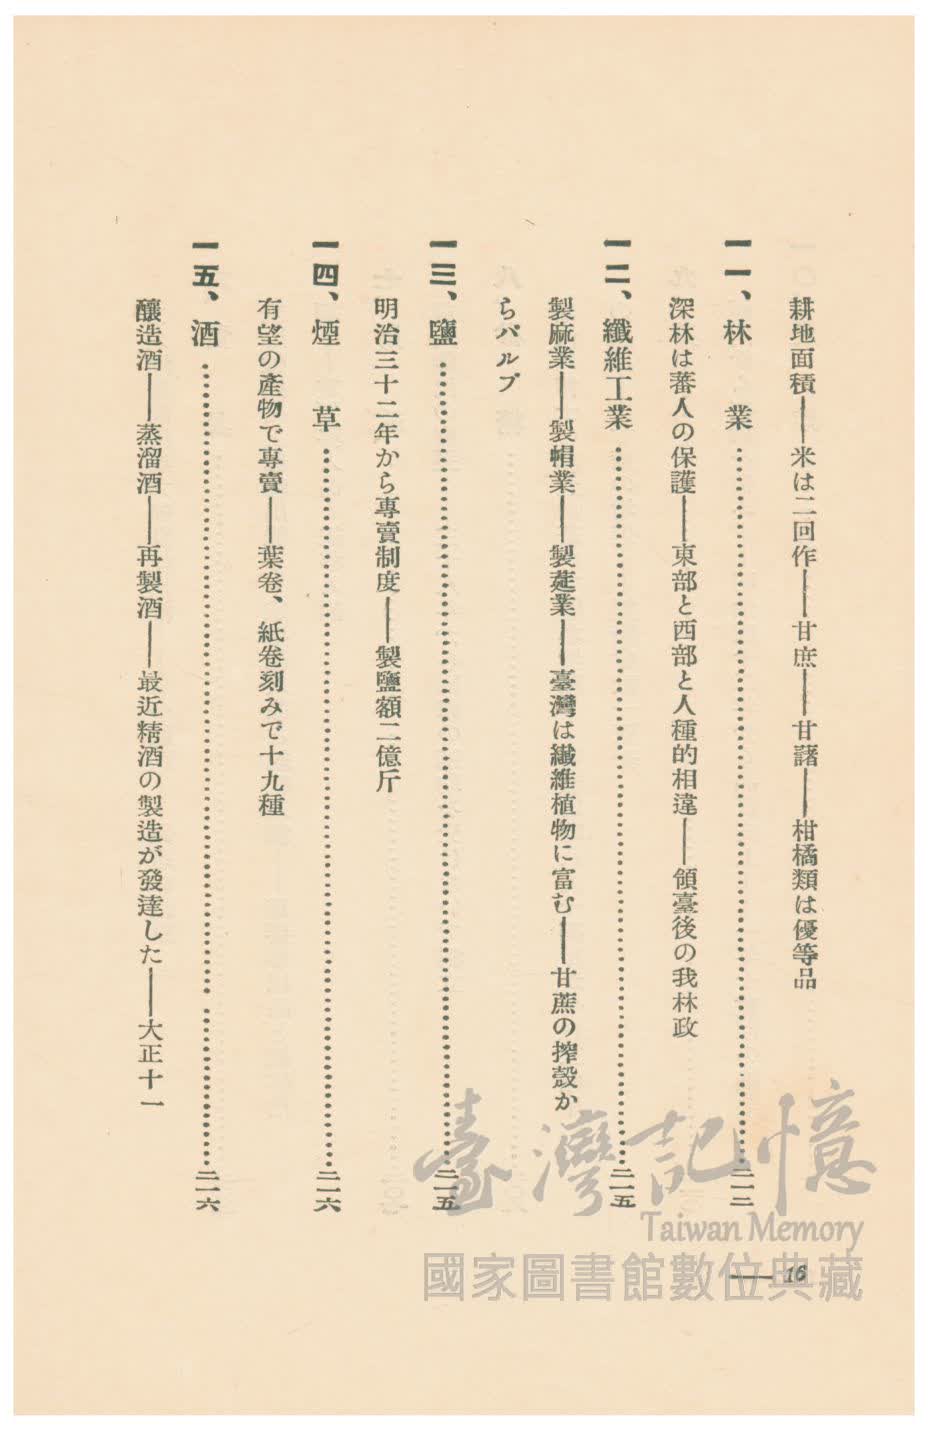 耕地面積――米は二回作――甘庶――甘藷――柑橘類は優等品
一一、林　業……………………二一二
深林は蕃人の保護――東部と西部と人種的相違――領臺後の我林政
一二、纖維工業……………………二一五
製麻業――製帽業――製莚業――臺灣は纖維植物に富む――甘蔗の搾殼か
らパルプ
一三、鹽……………………二一五
明治三十二年から專賣制度――製鹽額二億斤
一四、煙　草……………………二一六
有望の產物で專賣――葉卷、紙卷刻みで十九種
一五、酒……………………二一六
釀造酒――蒸溜酒――再製酒――最近精酒の製造が發達した――大正十一
―― 16
臺灣記憶
Taiwan Memory
國家圖書館數位典藏